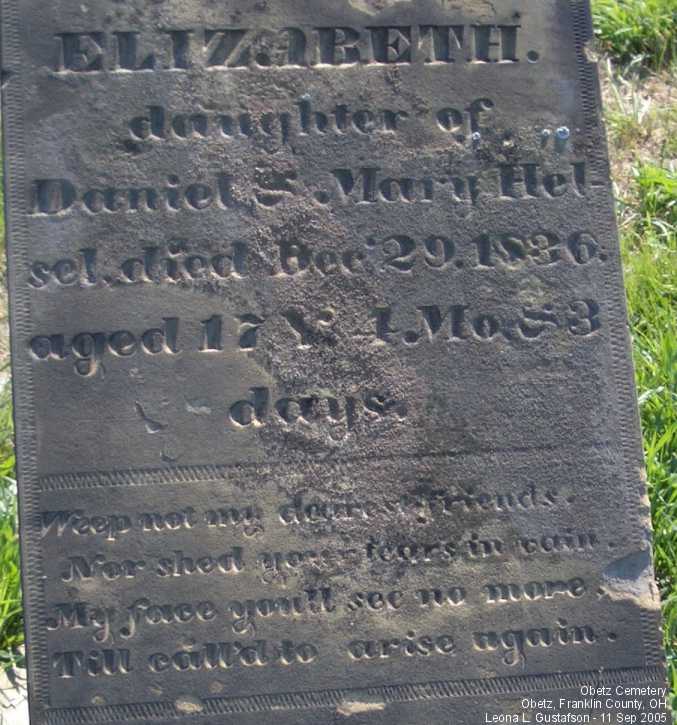 ELIZABETH.
daughter of
Daniel & Mary Hel-
sel, died Dec. 29. 1836.
aged 17 Y. 4. Mo. & 3
days.
Weep not my dearest friends.
Nor shed your tears in vain.
My face you'll see no more.
Till call'd to arise again.
Obetz Cemetery
Obetz, Franklin County, OH
Leona L. Gustafson - 11 Sep 2005